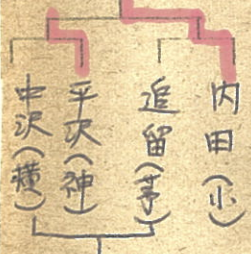 内田(小)
追留(茅)
平次(神)
中沢(横)